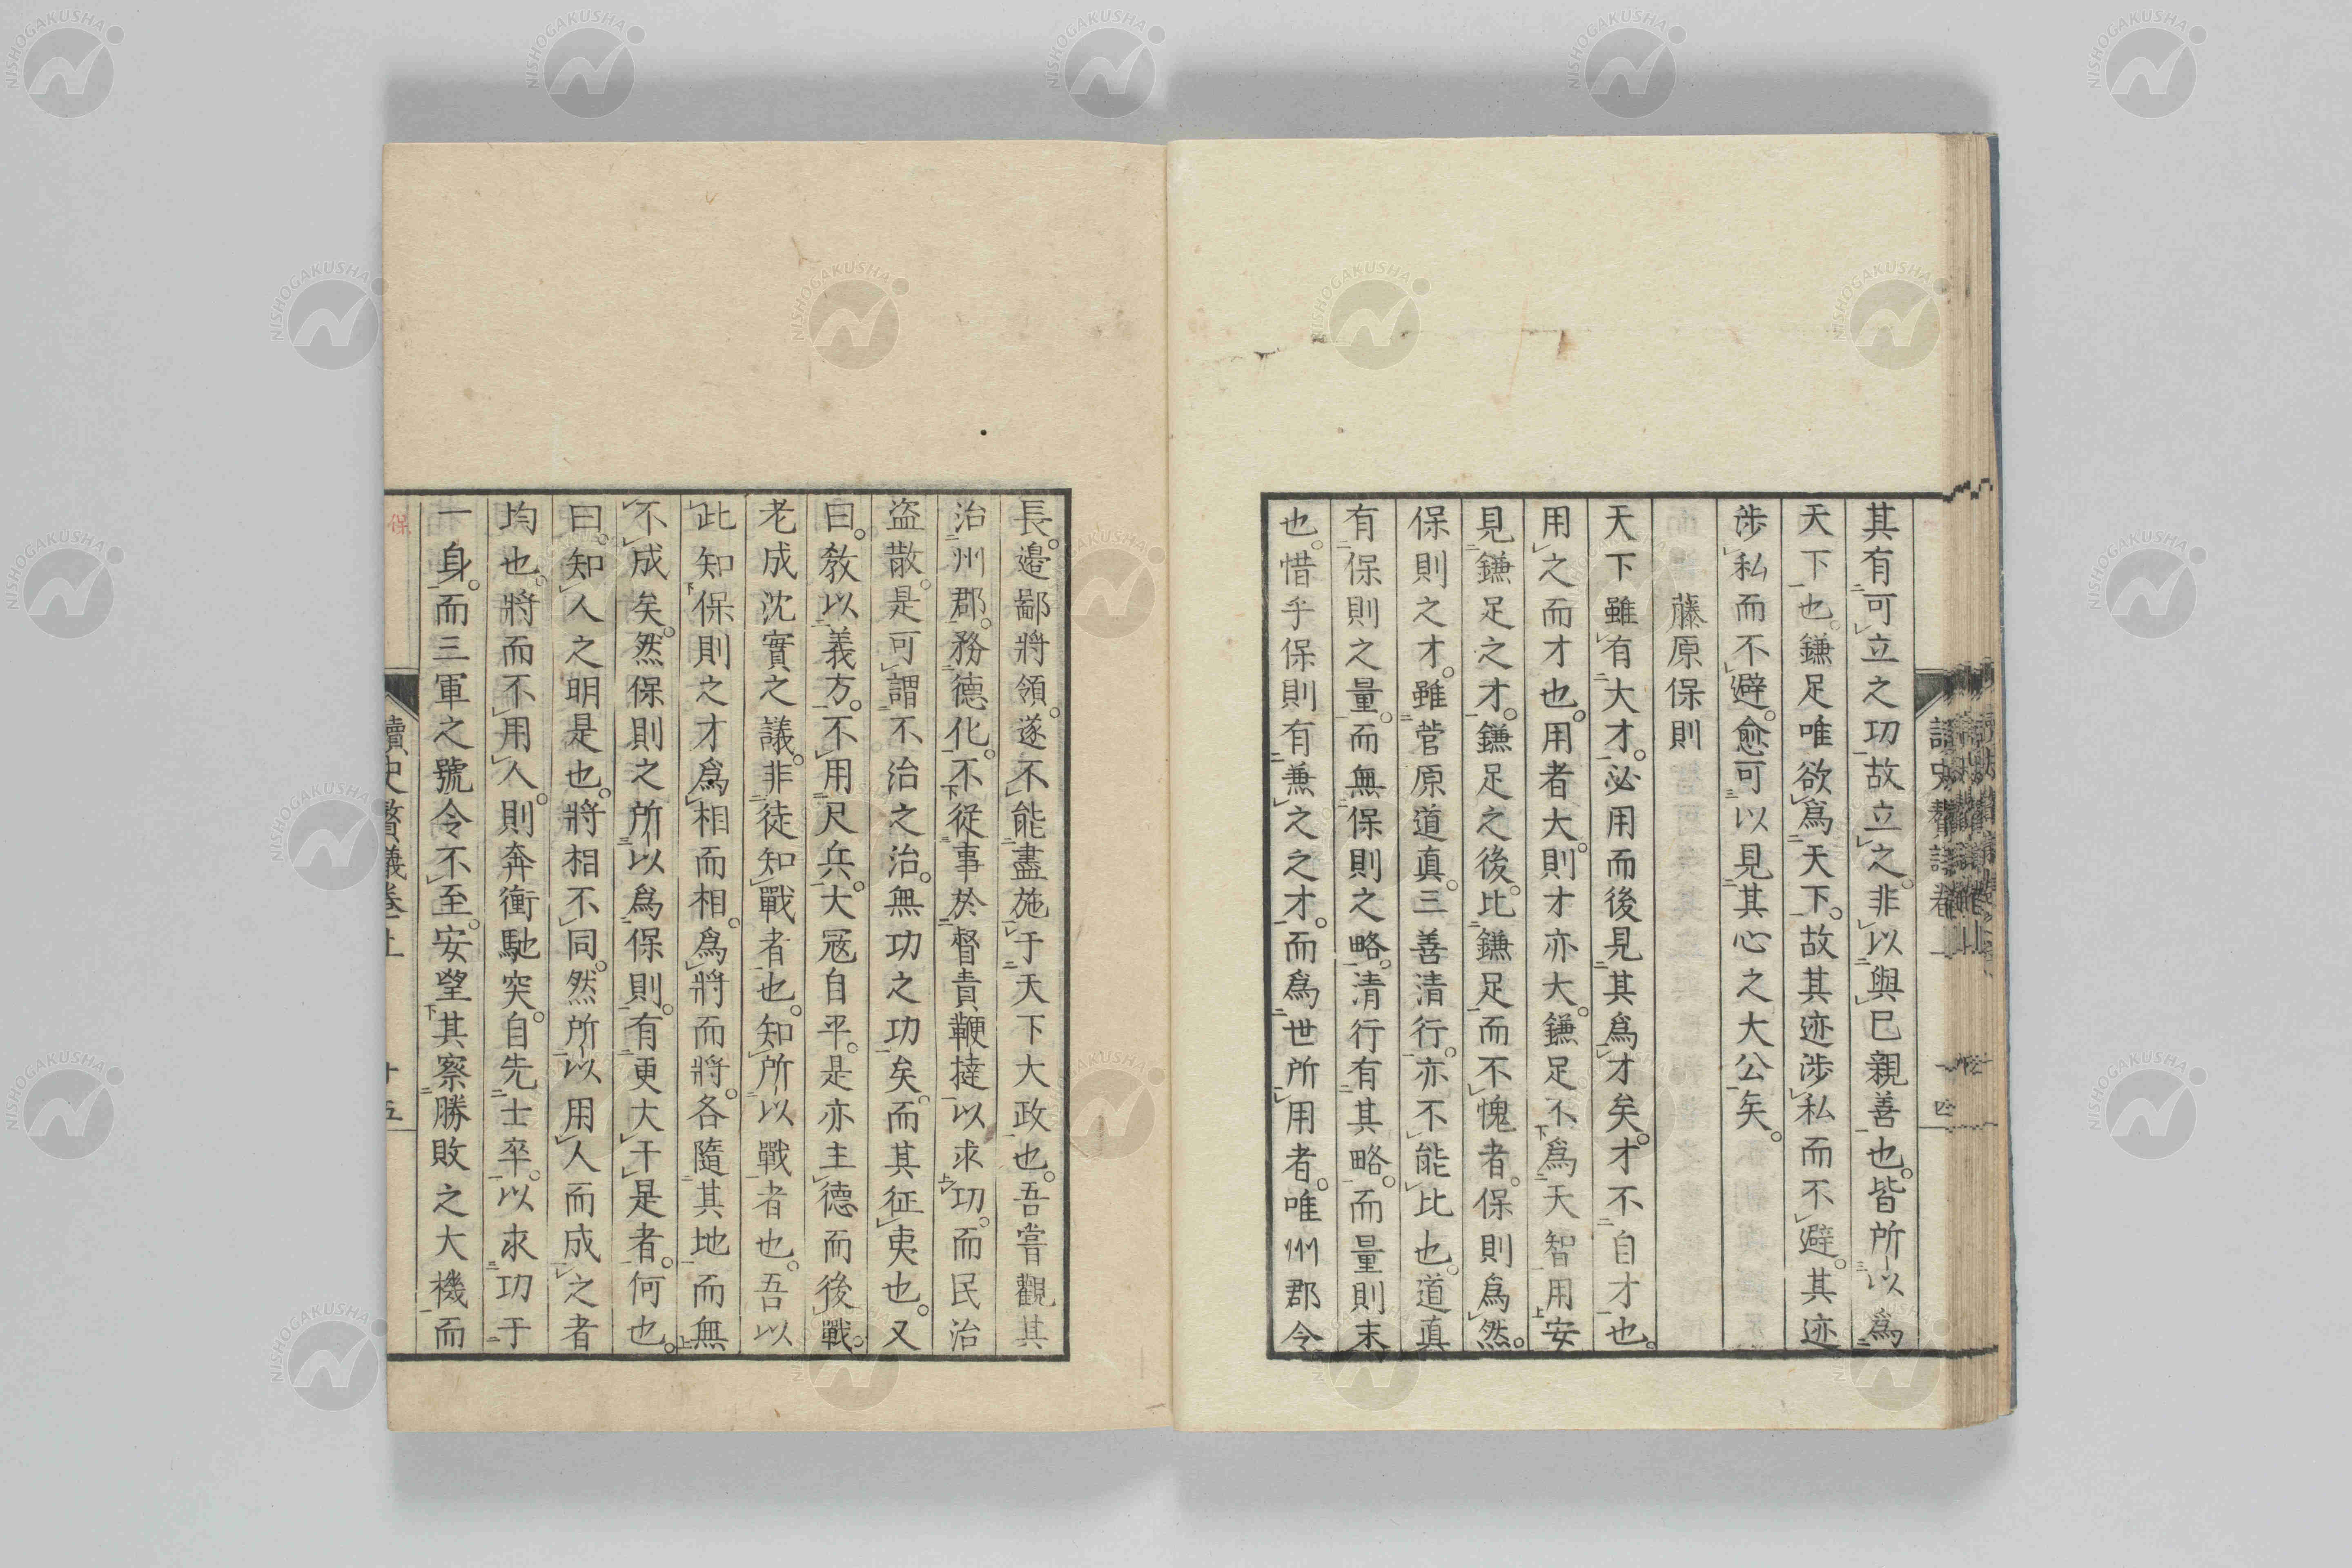 其有可立之功故立之。非以與已親善也。皆所以爲
天下也。鎌足唯欲爲天下。故其迹涉私而不避。其迹
涉私而不避。愈可以見其心之大公矣。
藤原保則
天下雖有大才。必用而後見其爲才矣。才不自才也。
用之而才也。用者大。則才亦大。鎌足不爲天智用安
見鎌足之才。鎌足之後。比鎌足而不愧者。保則爲然。
保則之才。雖菅原道真。三善清行。亦不能比也。道真
有保則之量。而無保則之略。清行有其略。而量則末
也。惜乎保則有兼之之才。而爲世所用者。唯州郡令
長。邉鄙將領。遂不能盡施于天下大政也。吾嘗觀其
治州郡。務德化。不從事於督責鞭撻以求功。而民治
盗散。是可謂不治之治。無功之功矣。而其征夷也。又
曰。敎以義方。不用尺兵。大冦自平。是亦主德而後戰。
老成沈實之議。非徒知戰者也。知所以戰者也。吾以
此知保則之才爲相而相。爲將而將。各隨其地而無
不成矣。然保則之所以爲保則。有更大于是者。何也。
曰。知人之明是也。將相不同。然所以用人而成之者
均也將而不用人。則奔衝馳突。自先士卒。以求功于
一身。而三軍之號令不至。安望其察勝敗之大機而
讀史贅議卷上
十五
NISHOGAKUSHA